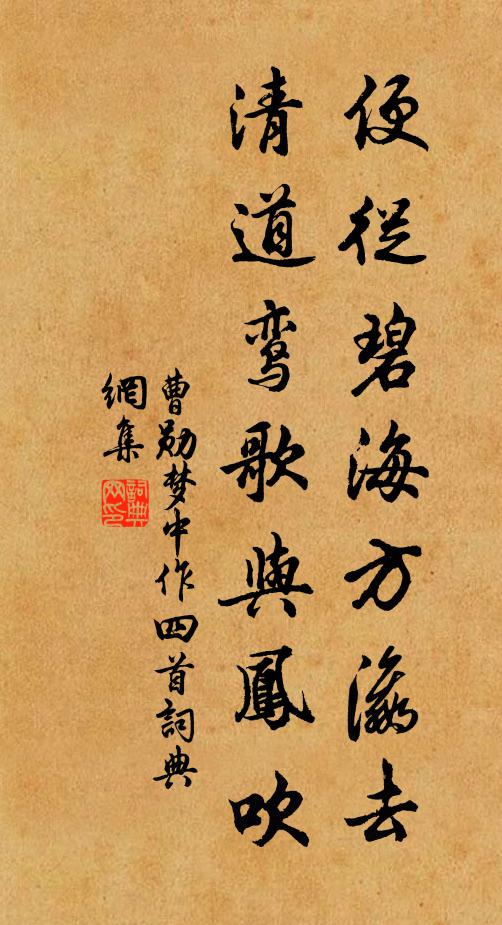 便從碧海方瀛去
清道鸾歌與鳳吹
曹勛梦中作四首詞典
網集
詞典
网印